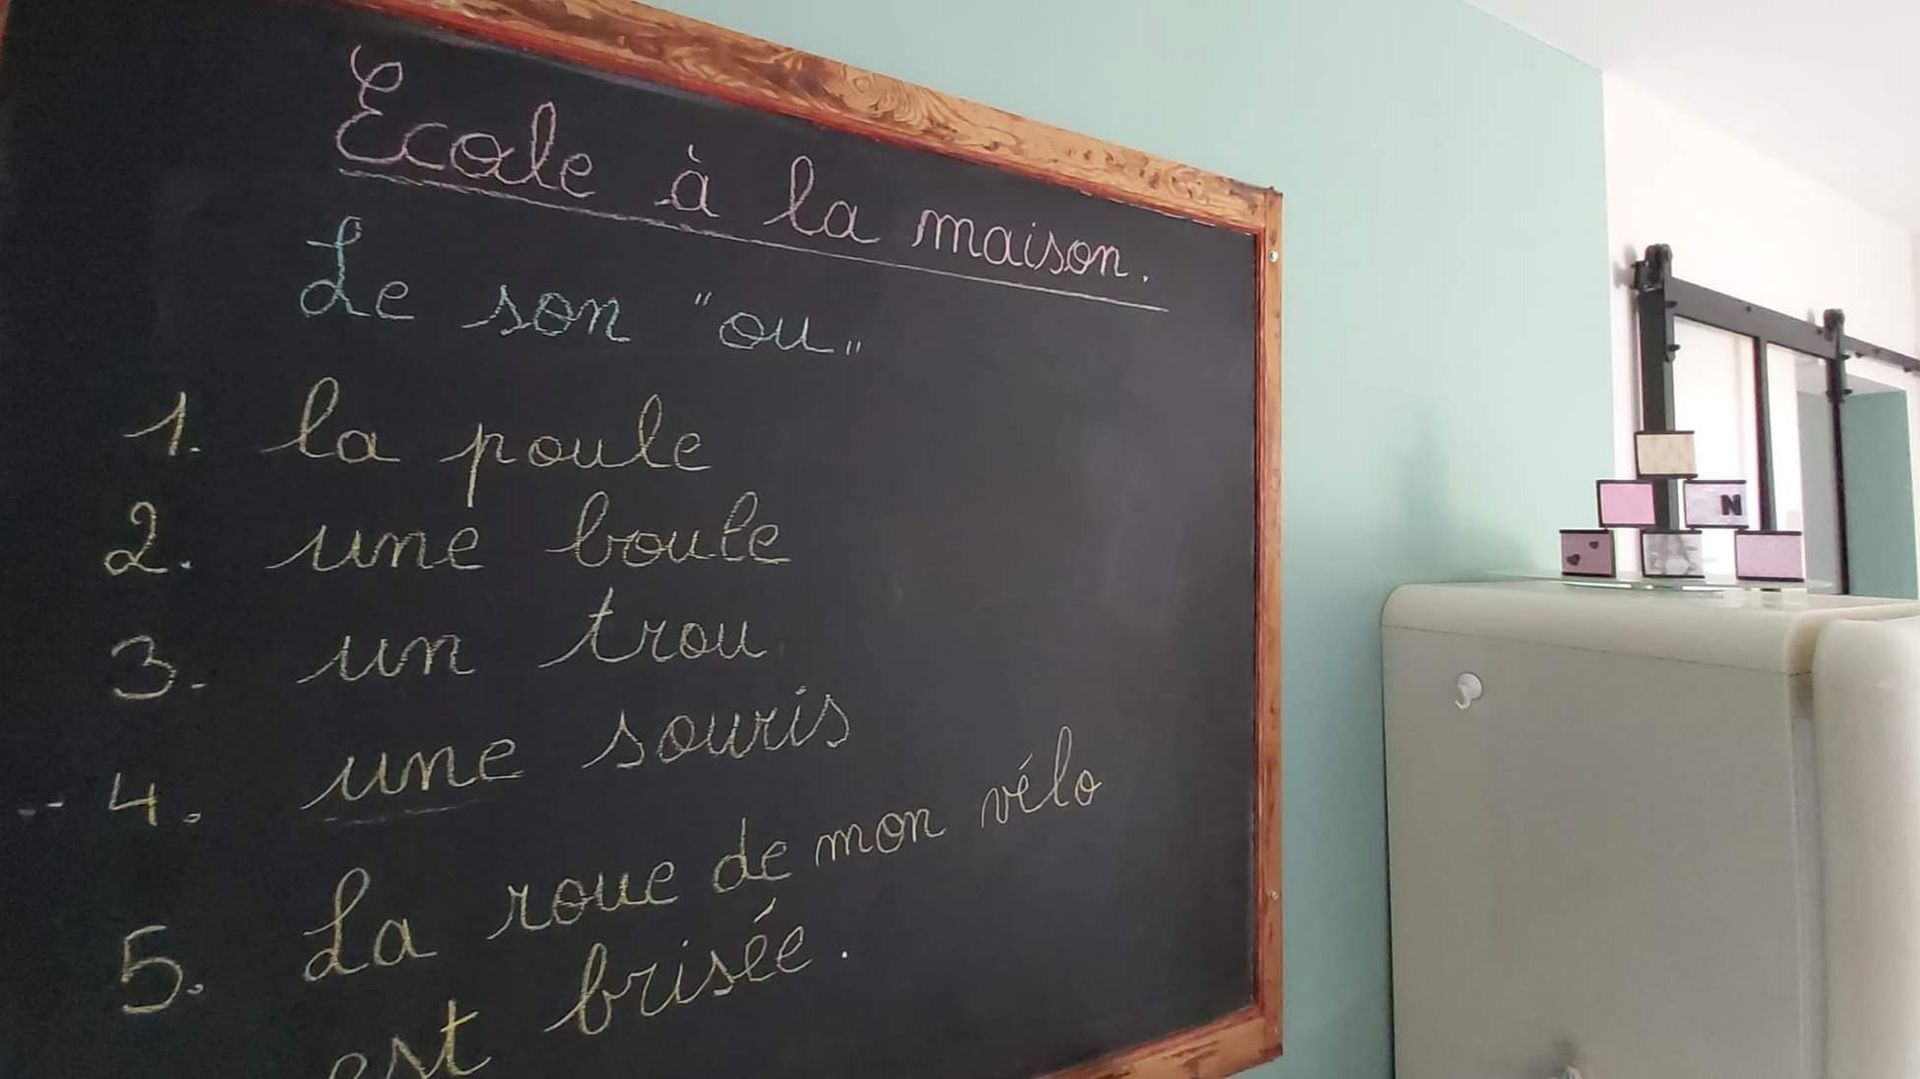 Ecole à la maison.
Le son "ou"
1. la poule
2. une boule
3. un trou
4. une souris
5. La roue de mon vélo
est brisée.
N